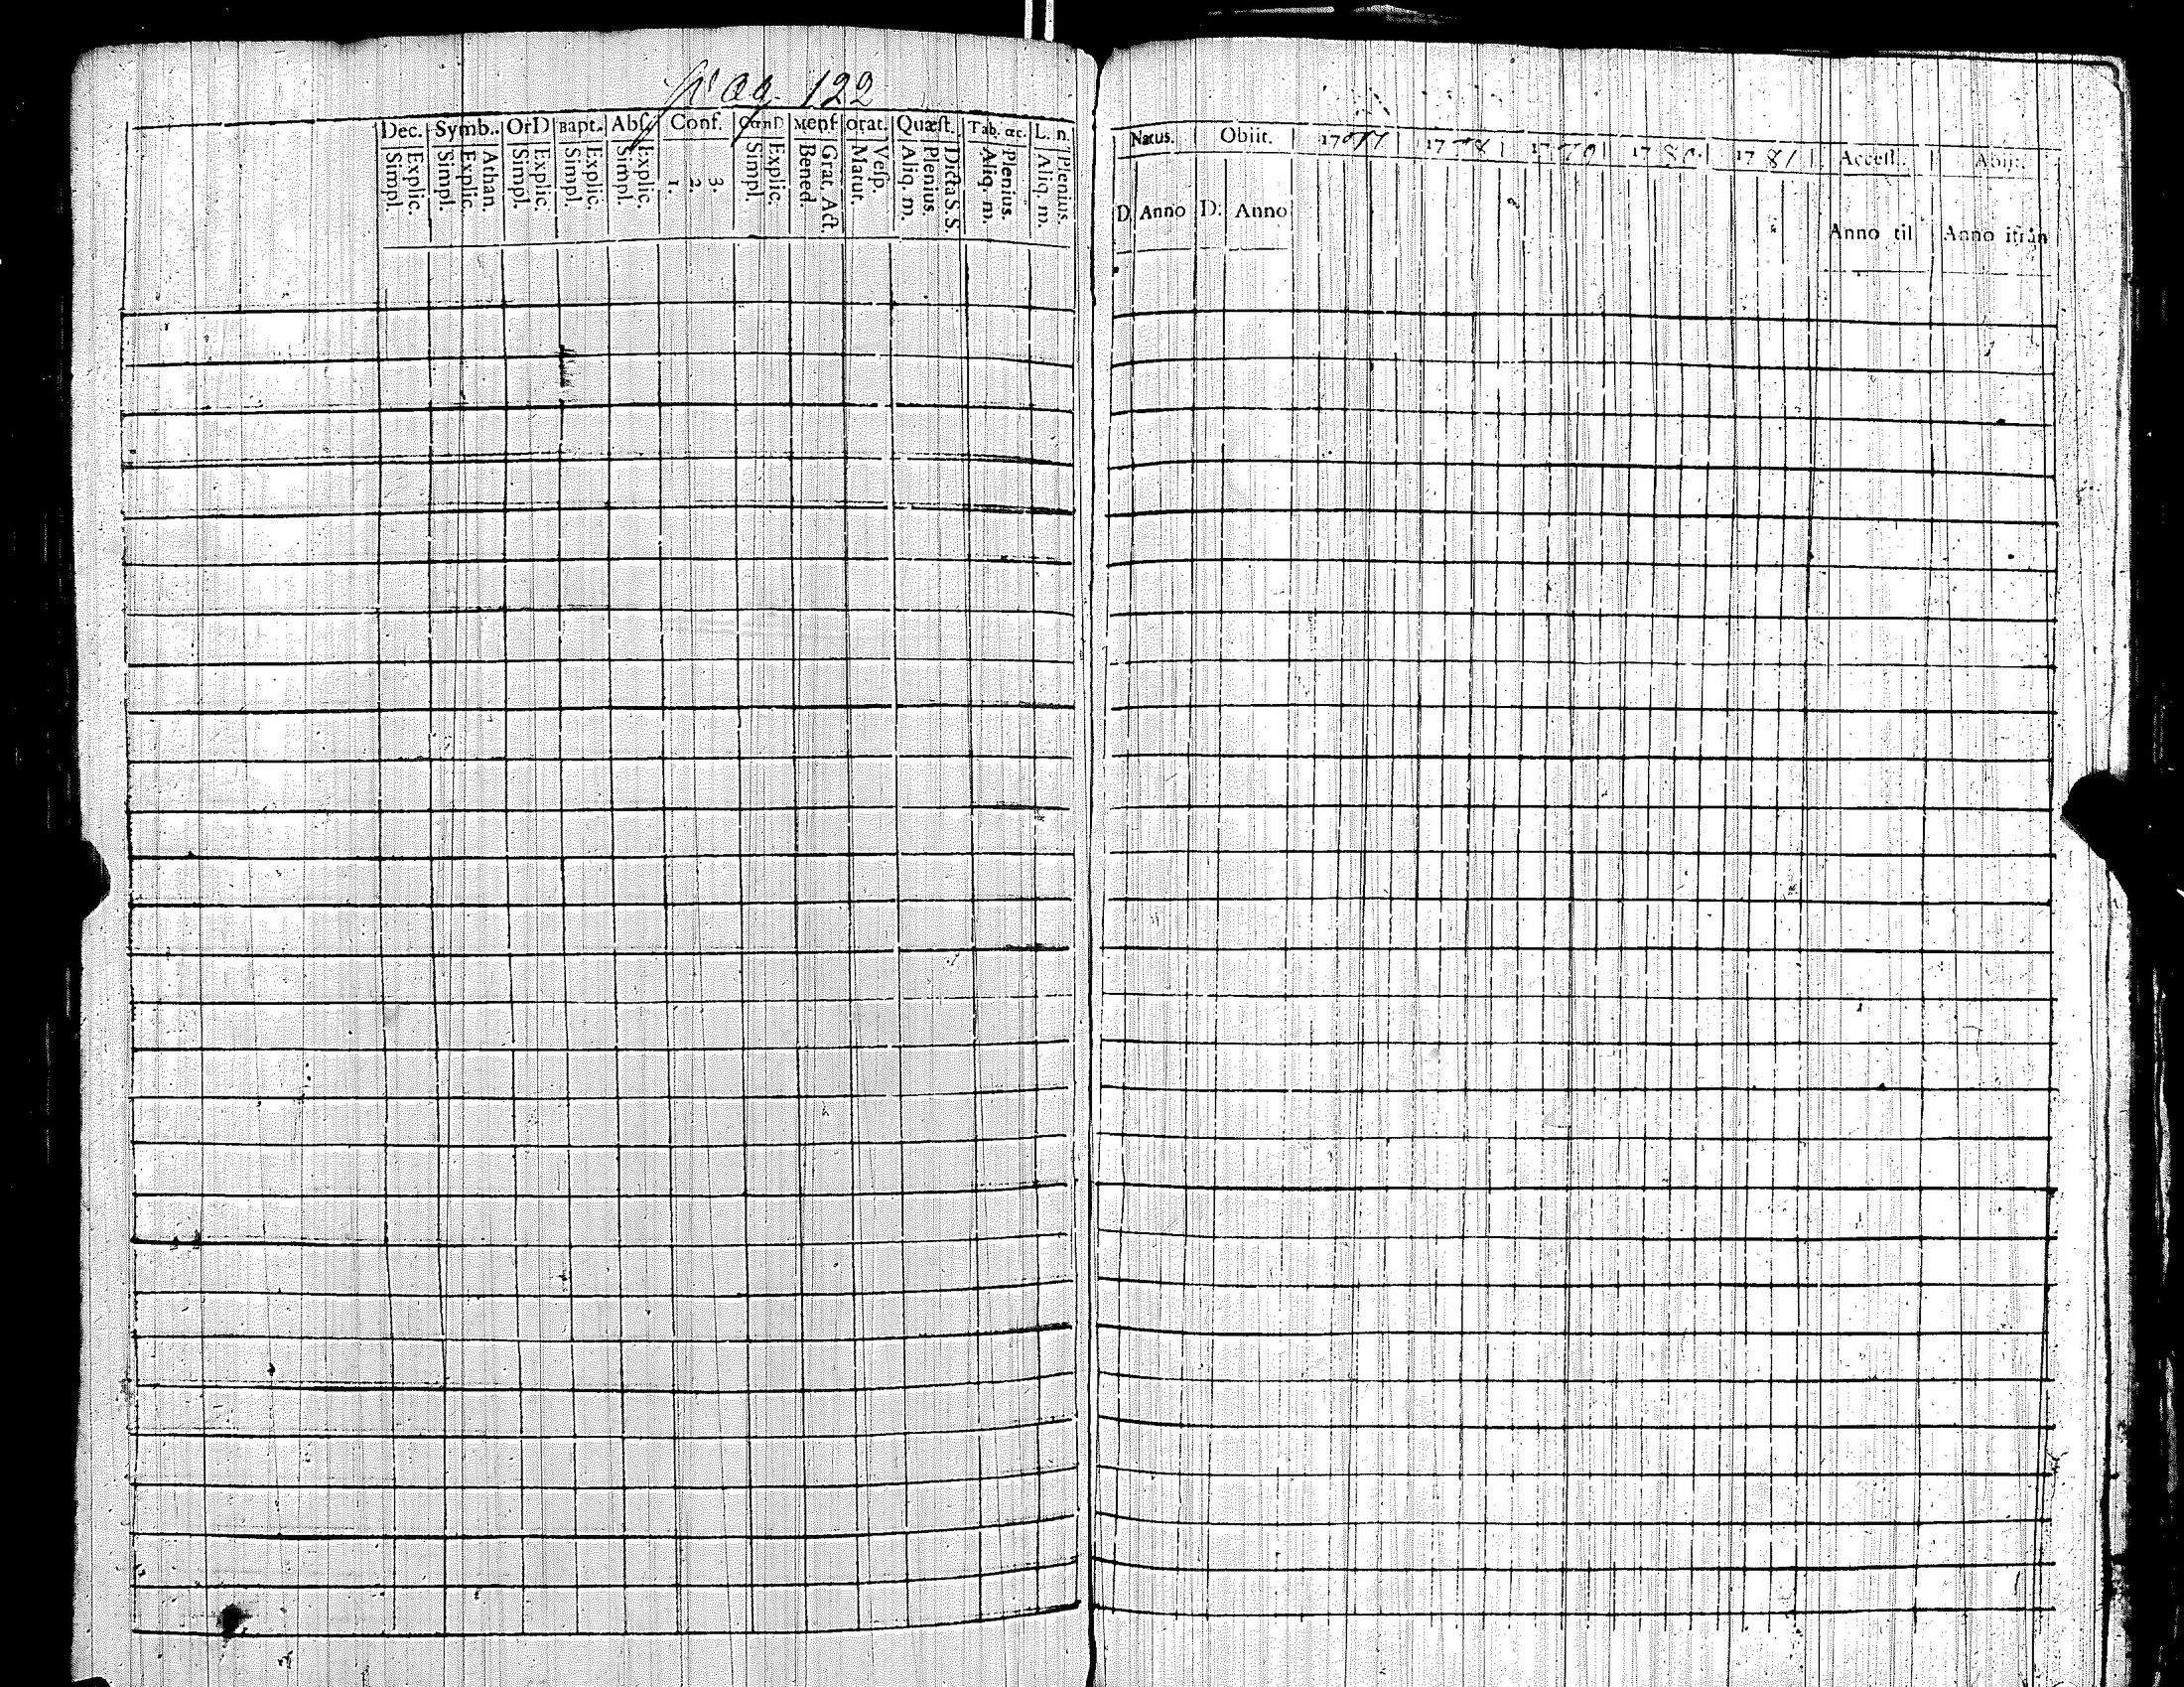 pag 122
Dec. Symb. OrD Bapt. Abſ. Conf. CœnD Menſ orat. Quæſt. Tab. œc. L. n.
Simpl. Explic. Simpl. Explic. Athan. Simpl. Explic. Simpl. Explic. Simpl. Explic. 1. 2. 3. Simpl. Explic. Bened. Grat. Act. Matut. Veſp. Aliq. m. Plenius. Dicta S.S. Aliq. m. Plenius. Aliq. m. Plenius.
Natus. Obiit. 1777 1778 1779 1780 1781 Acceſſ. Abiit.
D. Anno D. Anno Anno til Anno ifrån